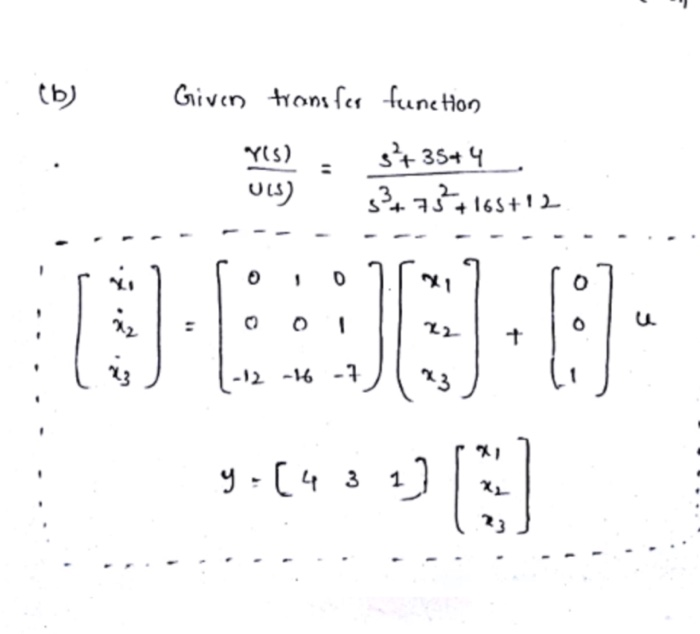 (b) Given transfer function
Y(s)/U(s) = s²+3s+4 / s³+7s²+16s+12
[ẋ1 ẋ2 ẋ3] = [0 1 0; 0 0 1; -12 -16 -7] [x1 x2 x3] + [0 0 1] u
y = [4 3 1] [x1 x2 x3]